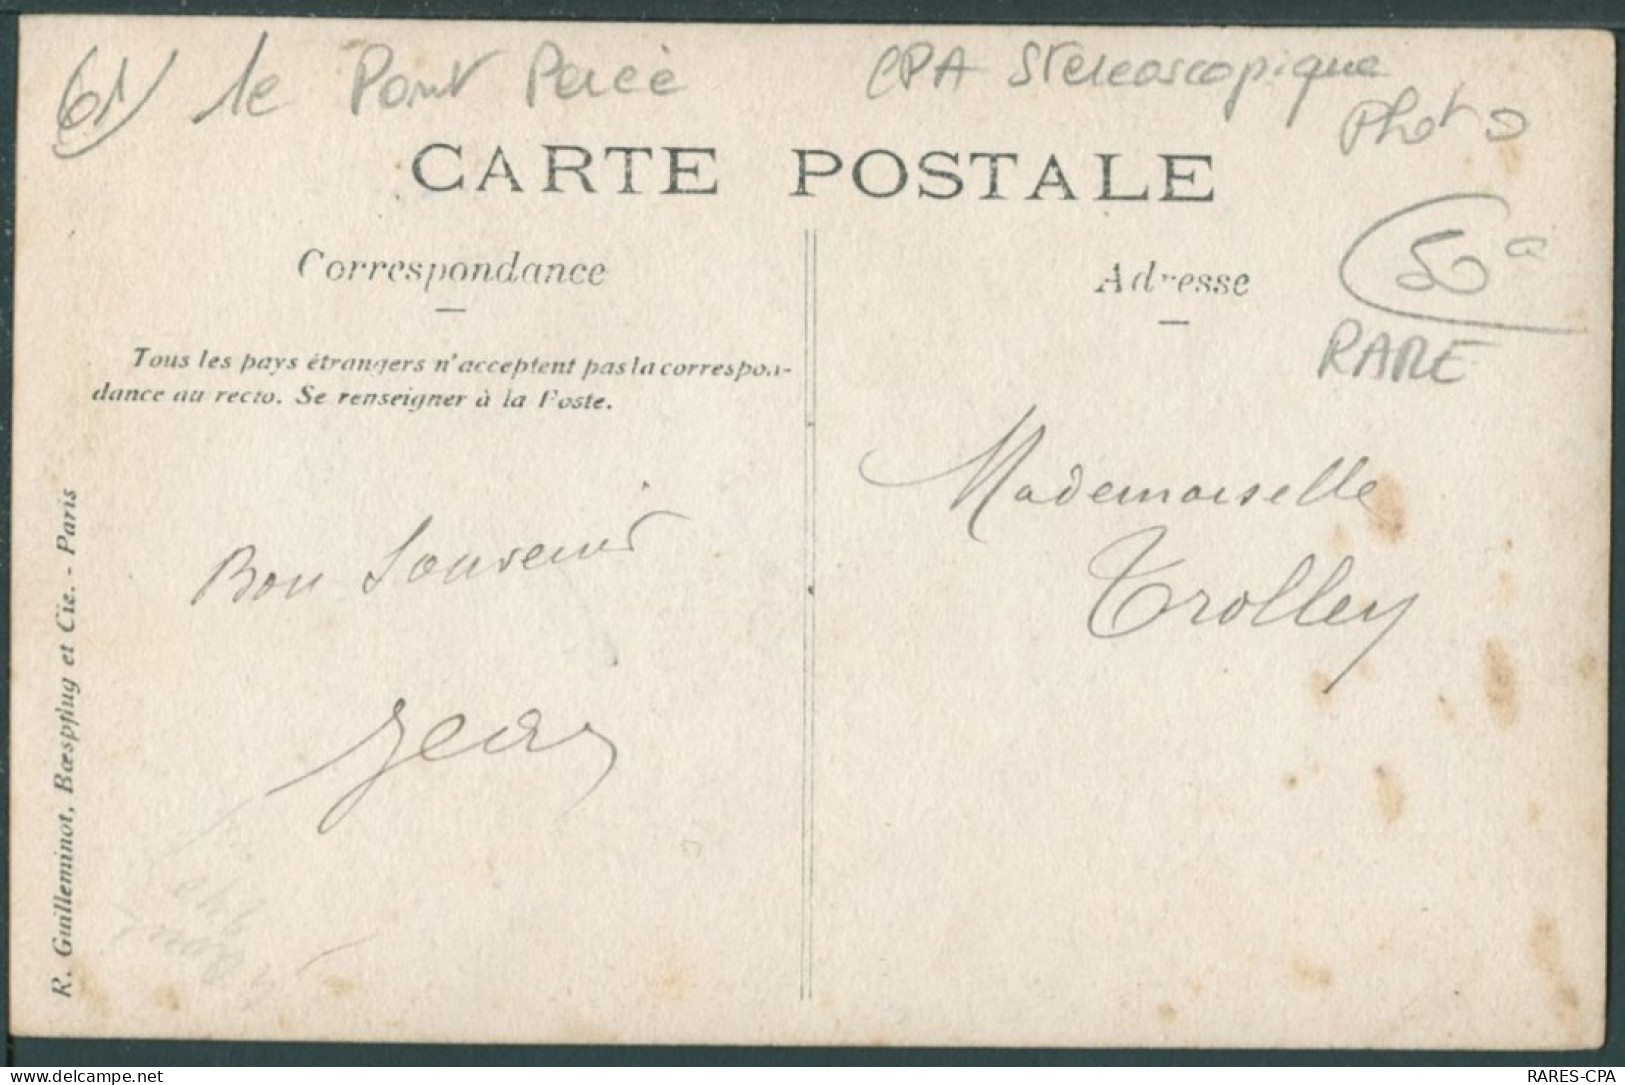 61 le Pont Percé
CPA Stereoscopique
Photo
CARTE POSTALE
Correspondance
Adresse
50
RARE
Tous les pays étrangers n'acceptent pas la correspon-
dance au recto. Se renseigner à la Poste.
Mademoiselle
Trolley
Bon Souvenir
Jean
R. Guilleminot, Bœspflug et Cie. - Paris
RARES-CPA